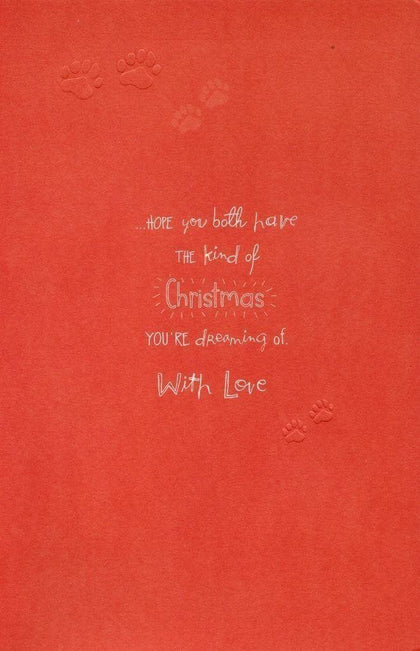 ...HOPE you both have
THE kind of
Christmas
YOU'RE dreaming of.
With Love